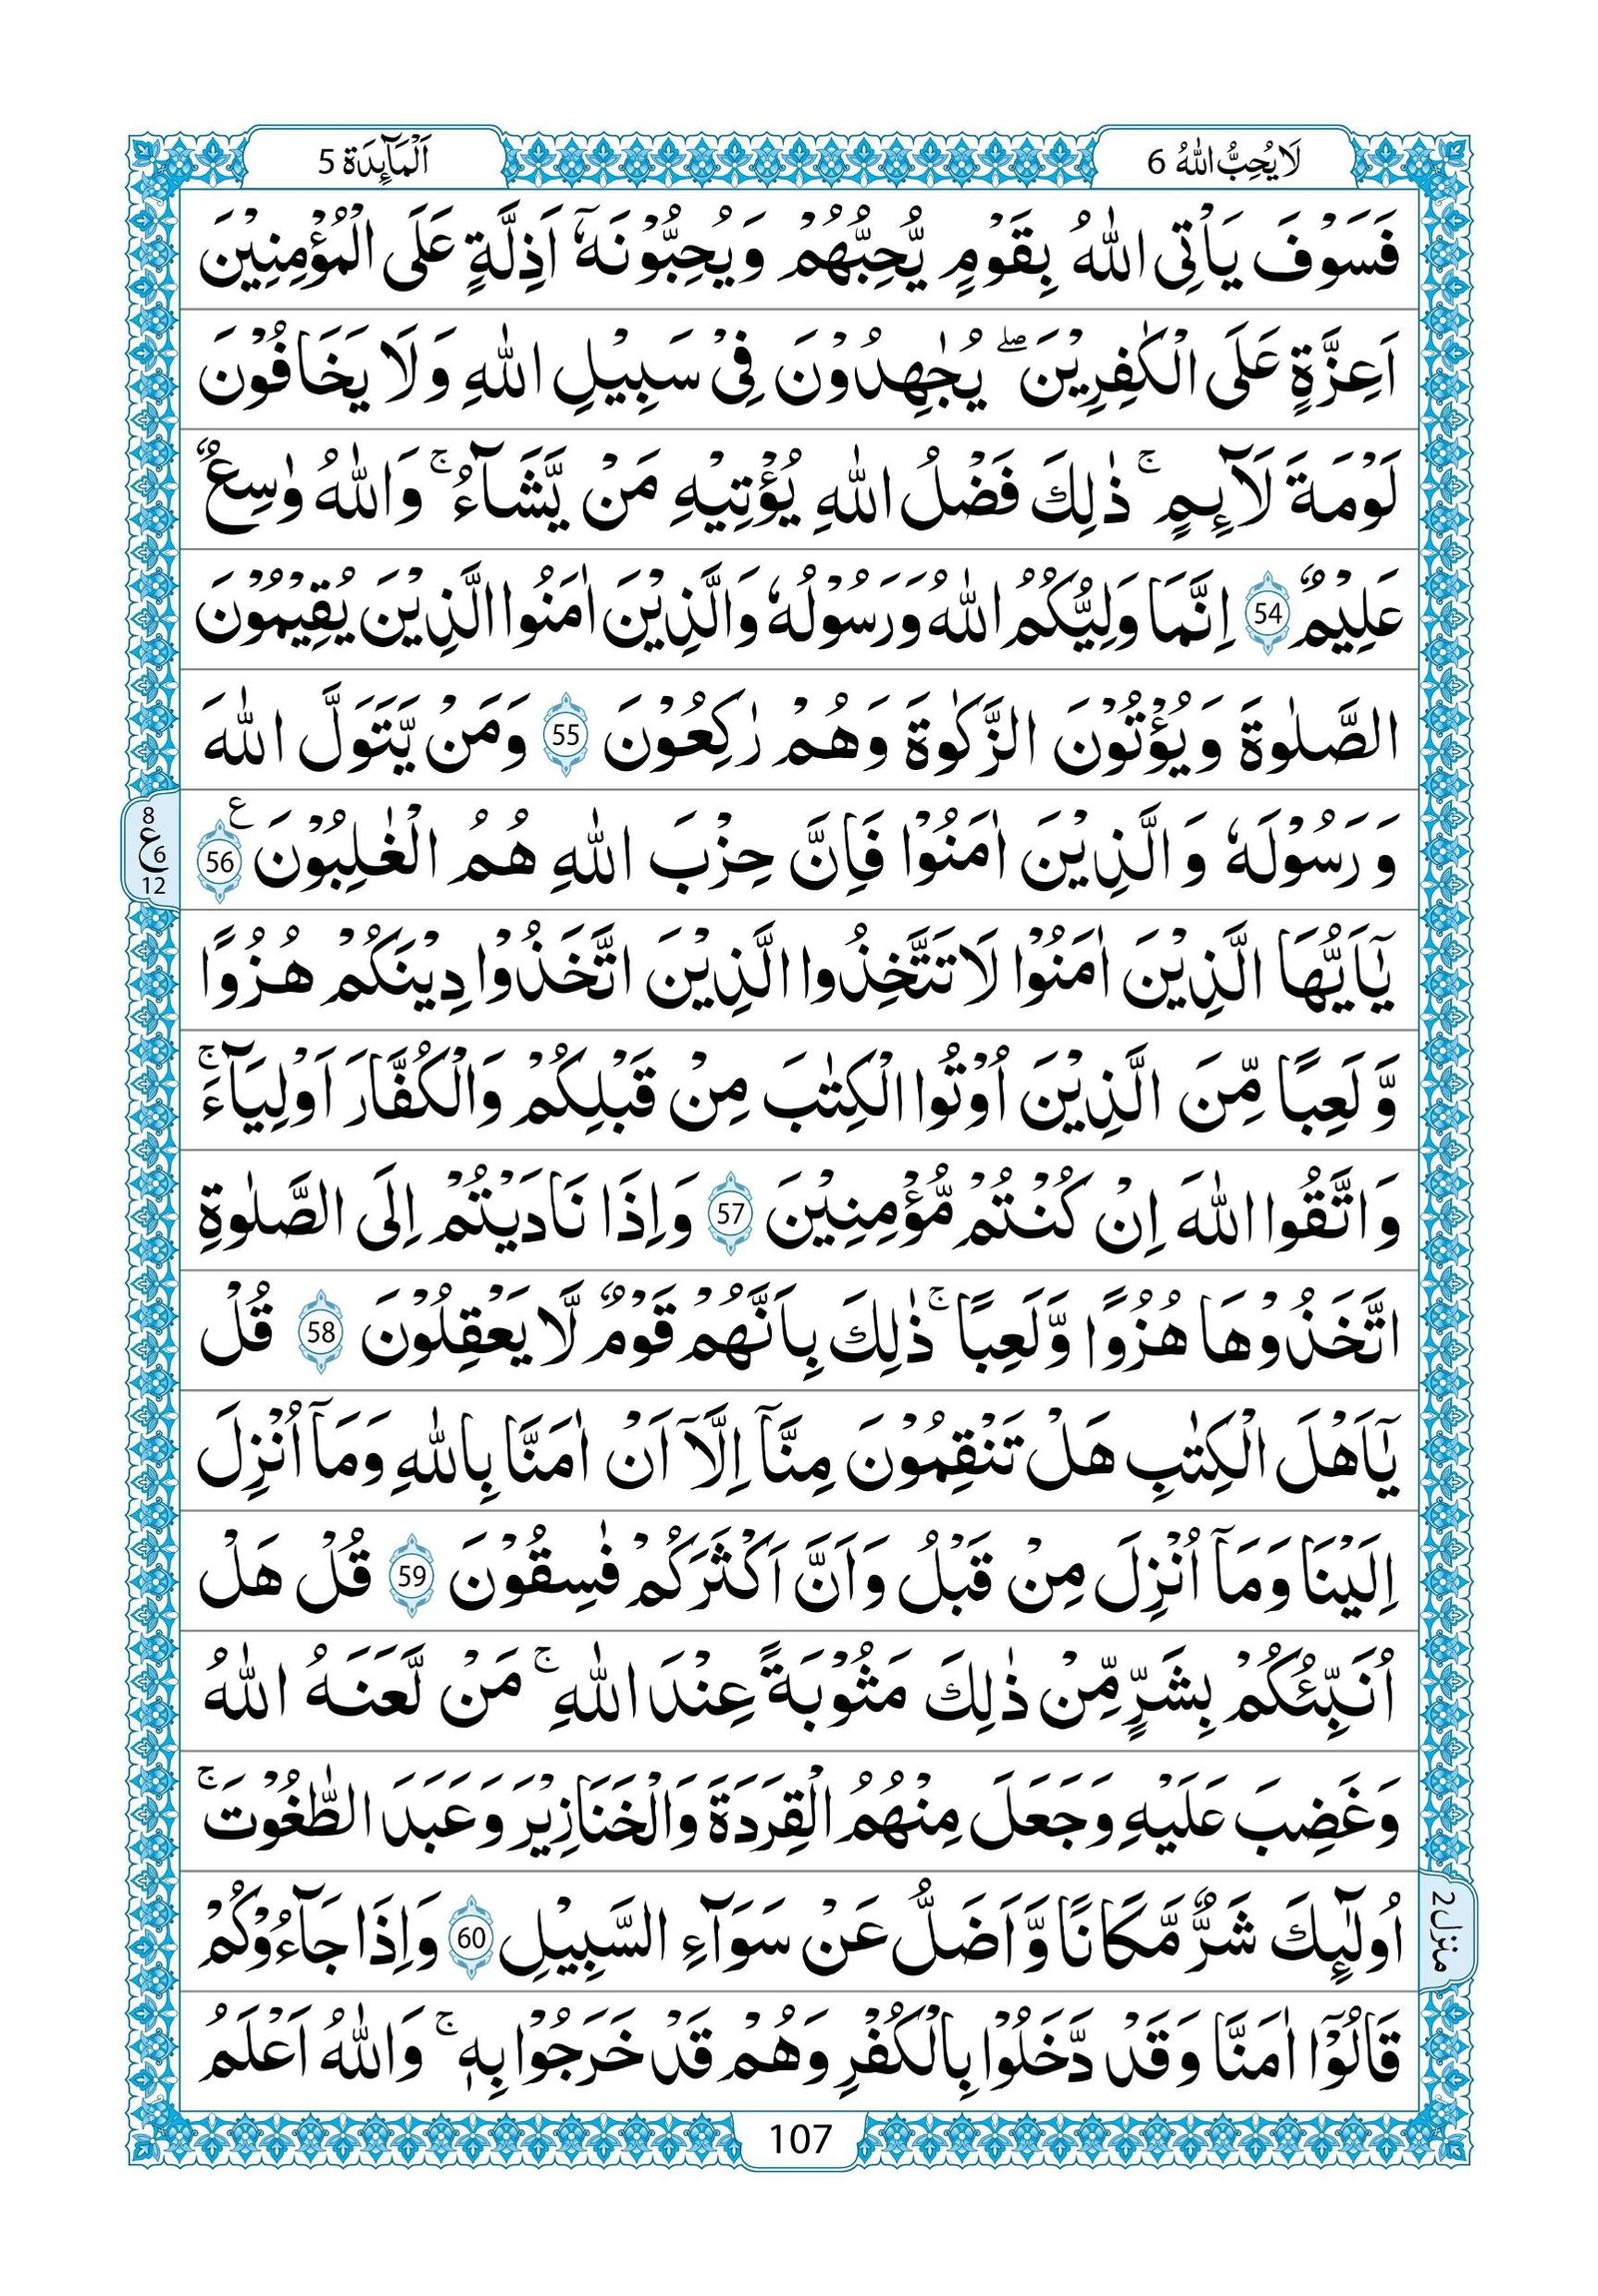 لَا يُحِبُّ اللهُ 6
اَلْمَآئِدَة 5
فَسَوْفَ يَاْتِى اللهُ بِقَوْمٍ يُّحِبُّهُمْ وَيُحِبُّوْنَهٗۤ اَذِلَّةٍ عَلَى الْمُؤْمِنِيْنَ
اَعِزَّةٍ عَلَى الْكٰفِرِيْنَ ۖ يُجٰهِدُوْنَ فِىْ سَبِيْلِ اللهِ وَلَا يَخَافُوْنَ
لَوْمَةَ لَآئِمٍ ۚ ذٰلِكَ فَضْلُ اللهِ يُؤْتِيْهِ مَنْ يَّشَآءُ ۚ وَاللهُ وٰسِعٌ
عَلِيْمٌ 54 اِنَّمَا وَلِيُّكُمُ اللهُ وَرَسُوْلُهٗ وَالَّذِيْنَ اٰمَنُوا الَّذِيْنَ يُقِيْمُوْنَ
الصَّلٰوةَ وَيُؤْتُوْنَ الزَّكٰوةَ وَهُمْ رٰكِعُوْنَ 55 وَمَنْ يَّتَوَلَّ اللهَ
وَرَسُوْلَهٗ وَالَّذِيْنَ اٰمَنُوْا فَاِنَّ حِزْبَ اللهِ هُمُ الْغٰلِبُوْنَ ع 56
8
ع 6
12
يٰۤاَيُّهَا الَّذِيْنَ اٰمَنُوْا لَا تَتَّخِذُوا الَّذِيْنَ اتَّخَذُوْا دِيْنَكُمْ هُزُوًا
وَّلَعِبًا مِّنَ الَّذِيْنَ اُوْتُوا الْكِتٰبَ مِنْ قَبْلِكُمْ وَالْكُفَّارَ اَوْلِيَآءَ ۚ
وَاتَّقُوا اللهَ اِنْ كُنْتُمْ مُّؤْمِنِيْنَ 57 وَاِذَا نَادَيْتُمْ اِلَى الصَّلٰوةِ
اتَّخَذُوْهَا هُزُوًا وَّلَعِبًا ۚ ذٰلِكَ بِاَنَّهُمْ قَوْمٌ لَّا يَعْقِلُوْنَ 58 قُلْ
يٰۤاَهْلَ الْكِتٰبِ هَلْ تَنْقِمُوْنَ مِنَّاۤ اِلَّاۤ اَنْ اٰمَنَّا بِاللهِ وَمَاۤ اُنْزِلَ
اِلَيْنَا وَمَاۤ اُنْزِلَ مِنْ قَبْلُ وَاَنَّ اَكْثَرَكُمْ فٰسِقُوْنَ 59 قُلْ هَلْ
اُنَبِّئُكُمْ بِشَرٍّ مِّنْ ذٰلِكَ مَثُوْبَةً عِنْدَ اللهِ ۚ مَنْ لَّعَنَهُ اللهُ
وَغَضِبَ عَلَيْهِ وَجَعَلَ مِنْهُمُ الْقِرَدَةَ وَالْخَنَازِيْرَ وَعَبَدَ الطّٰغُوْتَ ۚ
اُولٰٓئِكَ شَرٌّ مَّكَانًا وَّاَضَلُّ عَنْ سَوَآءِ السَّبِيْلِ 60 وَاِذَا جَآءُوْكُمْ
منزل 2
قَالُوْۤا اٰمَنَّا وَقَدْ دَّخَلُوْا بِالْكُفْرِ وَهُمْ قَدْ خَرَجُوْا بِهٖ ۚ وَاللهُ اَعْلَمُ
107